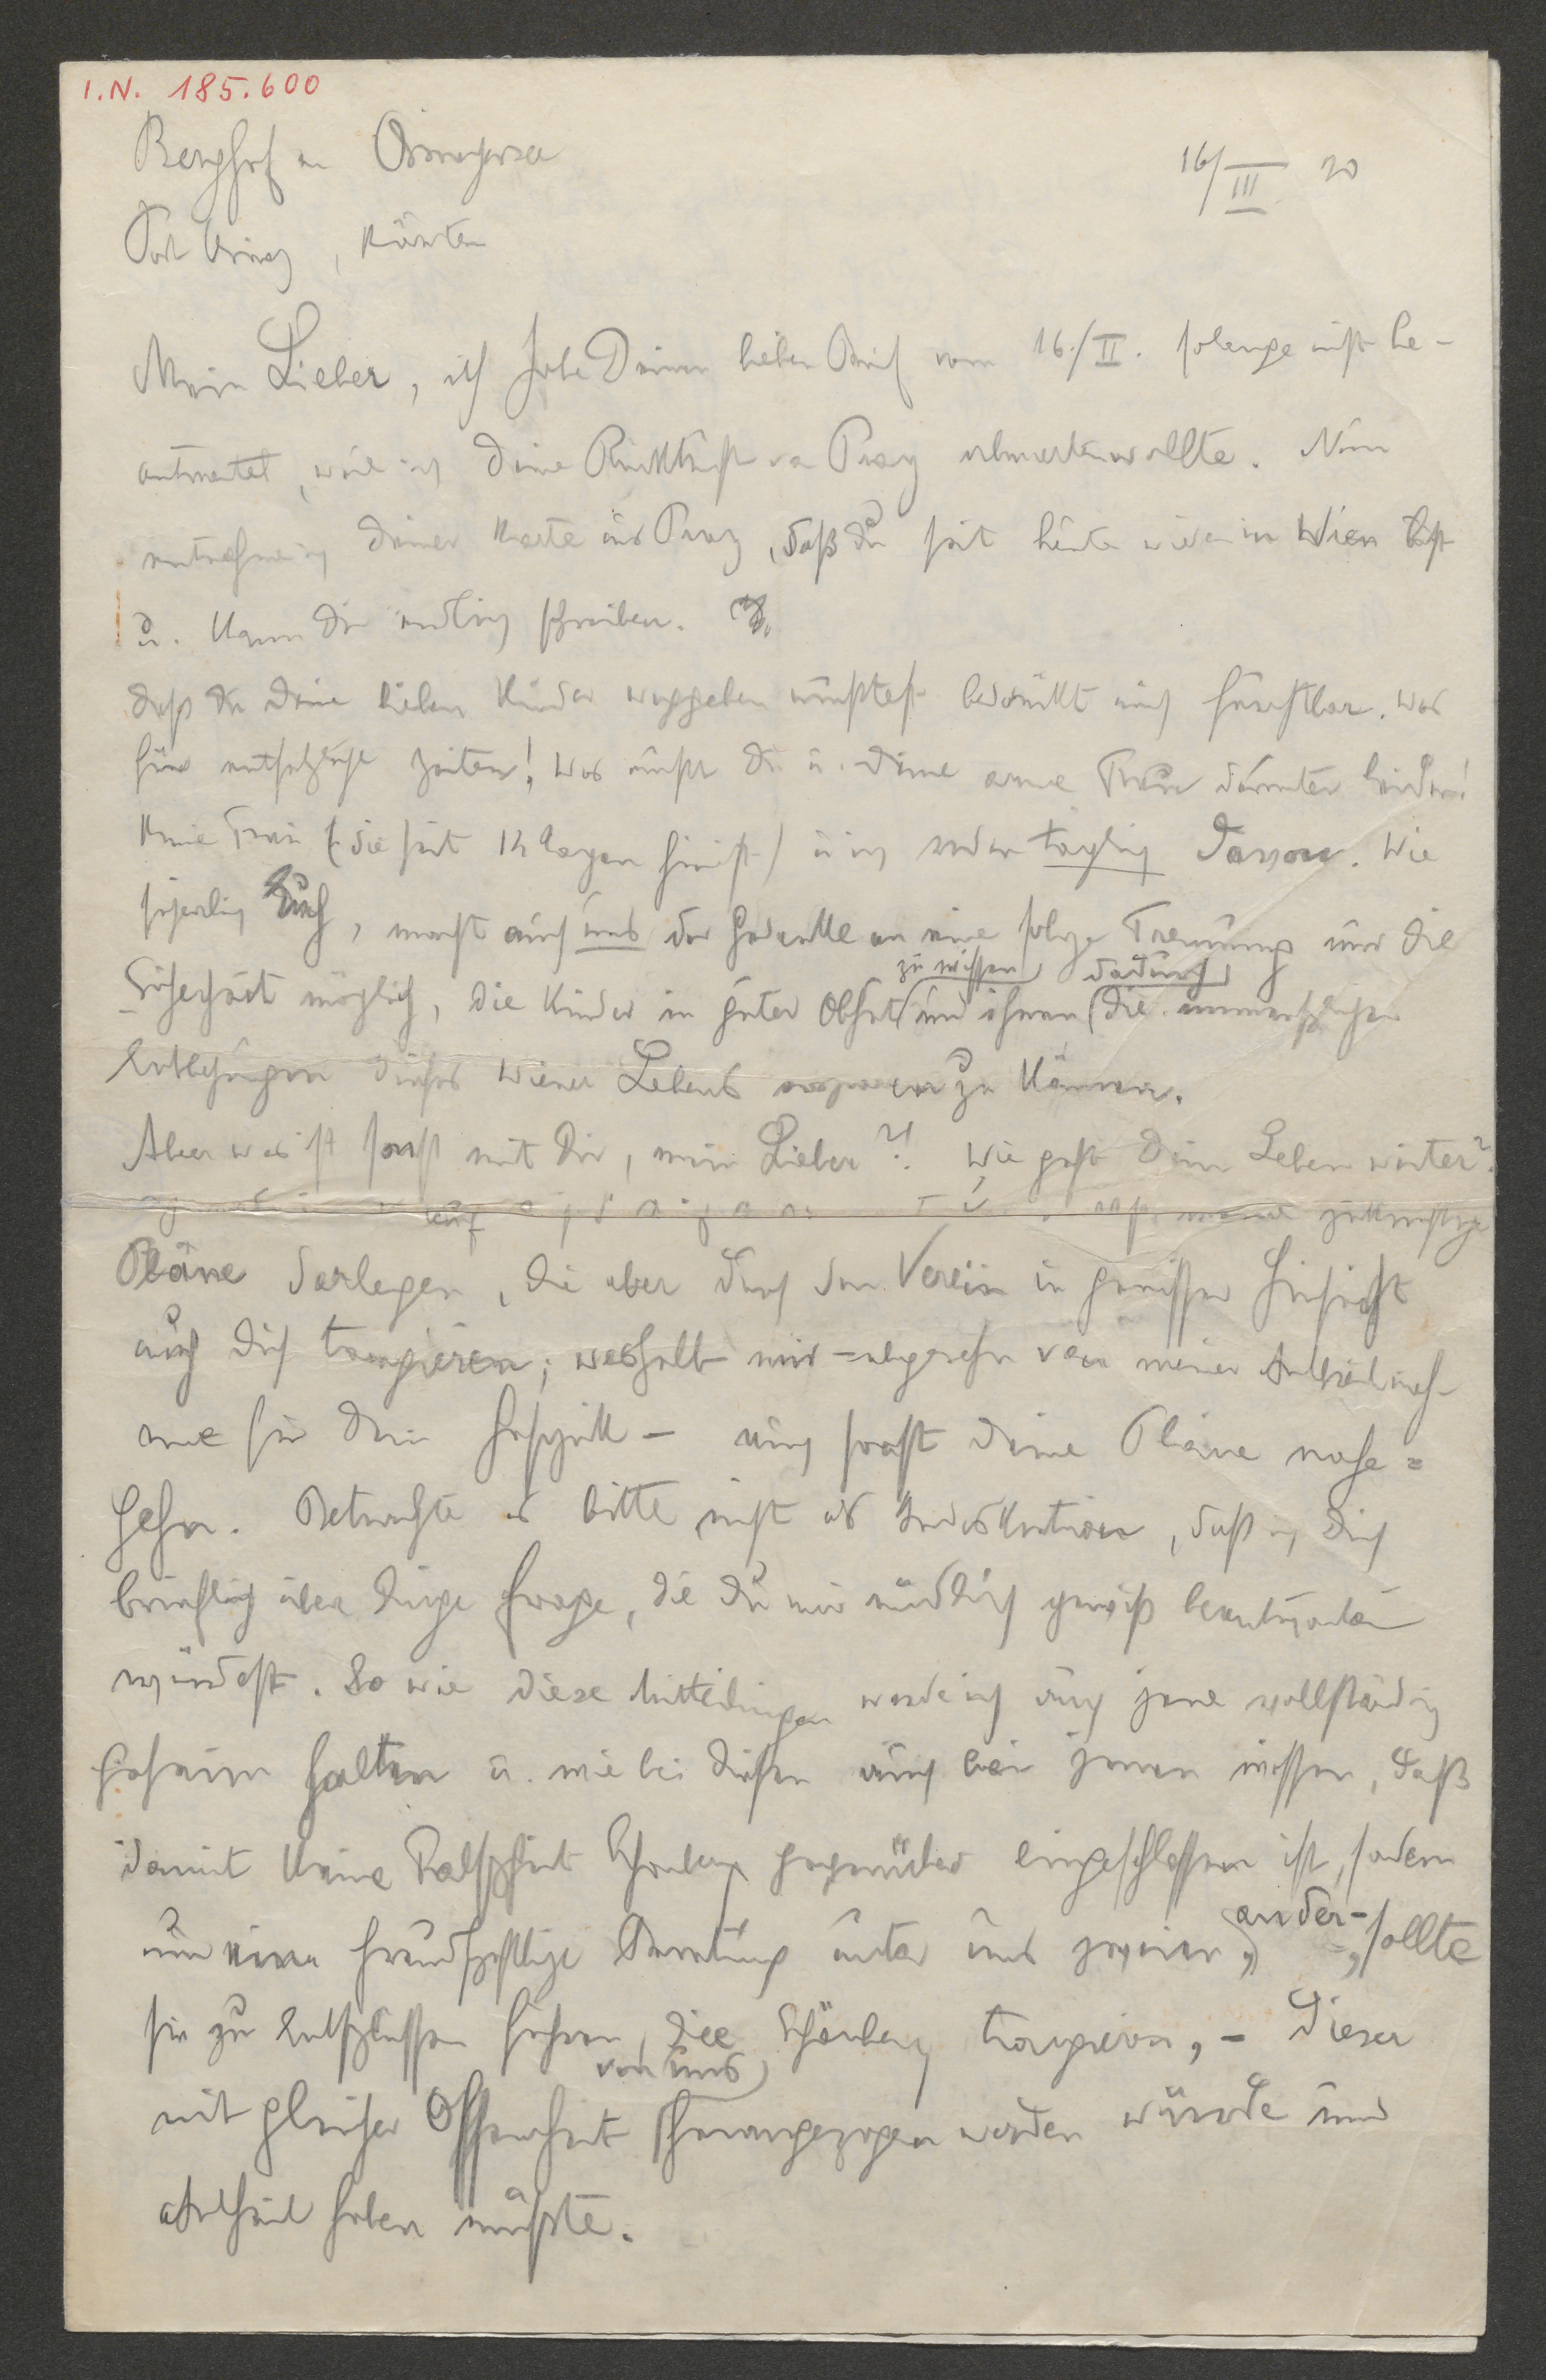 I.N. 185.600
Berghof am Ossiachersee
16/III 20
Post Annenheim, Kärnten
Mein Lieber, ich habe Deinen lieben Brief vom 16./II. solange nicht be-
antwortet, weil ich Deine Rückkunft von Prag abwarten wollte. Nun
entnehme ich Deiner Karte aus Prag, daß Du seit heute wieder in Wien bist
u. kann Dir endlich schreiben.
Daß Du Deine lieben Kinder weggeben mußtest bedrückt mich furchtbar. Was
für entsetzliche Zeiten! Was müßt Du u. Deine arme Frau darunter leiden!
Meine Frau (die seit 14 Tagen hier ist) u ich reden täglich davon. Wie
sicherlich Euch, macht auch uns der Gedanke an eine solche Trennung nur die
Sicherheit möglich, die Kinder in guter Obhut zu wissen und ihnen dadurch die unmenschlichen
Entbehrungen dieses Wiener Lebens ersparen zu können.
Aber was ist sonst mit Dir, mein Lieber?! Wie geht Dein Leben weiter?
meine zukünftigen
Pläne darlegen, die aber durch den Verein in gewisser Hinsicht
auch Dich tangieren; weshalb mir – abgesehn von meiner Antheilnah-
me für Dein Geschick – auch sonst Deine Pläne nahe-
gehn. Betrachte es bitte nicht als Indiskretion, daß ich Dich
brieflich über Dinge frage, die Du mir mündlich gewiß beantworten
würdest. So wie diese Mitteilungen werde ich auch jene vollständig
geheim halten u. wie bei diesen auch bei jenen wissen, daß
damit keine Falschheit Schönberg gegenüber eingeschlossen ist, sondern
nur eine freundschaftliche Beratung unter uns zweien, ander-, sollte
sie zu Entschlüssen führen, die Schönberg tangieren, – dieser
mit gleicher Offenheit von uns herangezogen werden würde und
Antheil haben müßte.